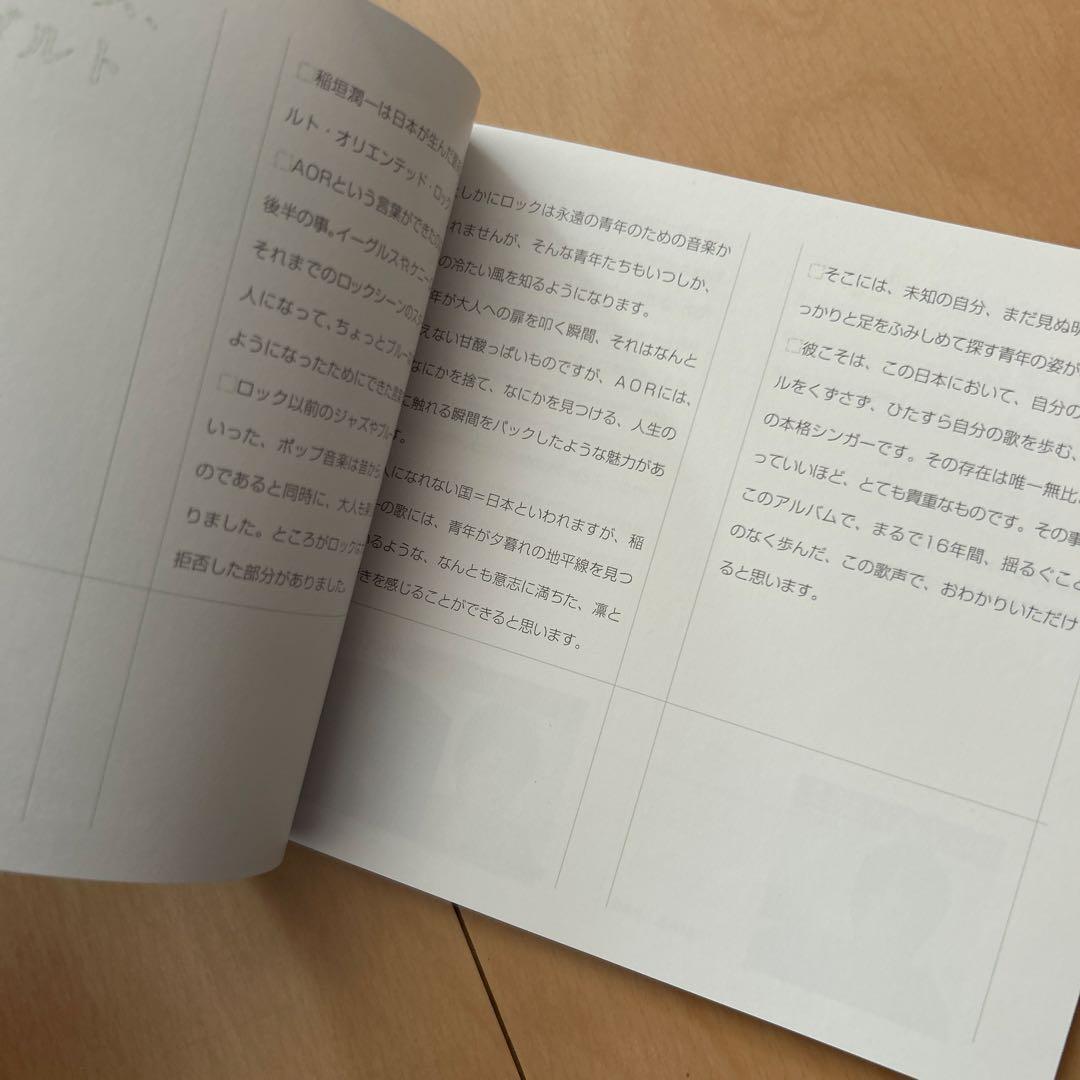 ルト
□稲垣潤一は日本が生んだ
ルト・オリエンテッド・ロック
□AORという言葉ができたの
後半の事。イーグルスやケニー
それまでのロックシーンのス
人になって、ちょっとブルー
ようになったためにできた言
□ロック以前のジャズやブルー
いった、ポップ音楽は昔から
のであると同時に、大人も
りました。ところがロックは
拒否した部分がありました
しかにロックは永遠の青年のための音楽か
れませんが、そんな青年たちもいつしか、
の冷たい風を知るようになります。
年が大人への扉を叩く瞬間、それはなんと
えない甘酸っぱいものですが、AORには、
なにかを捨て、なにかを見つける、人生の
に触れる瞬間をパックしたような魅力があ
す。
人になれない国＝日本といわれますが、稲
一の歌には、青年が夕暮れの地平線を見つ
るような、なんとも意志に満ちた、凛と
きを感じることができると思います。
□そこには、未知の自分、まだ見ぬ明
っかりと足をふみしめて探す青年の姿が
□彼こそは、この日本において、自分の
ルをくずさず、ひたすら自分の歌を歩む、
の本格シンガーです。その存在は唯一無比
っていいほど、とても貴重なものです。その事
このアルバムで、まるで16年間、揺るぐこと
のなく歩んだ、この歌声で、おわかりいただけ
ると思います。